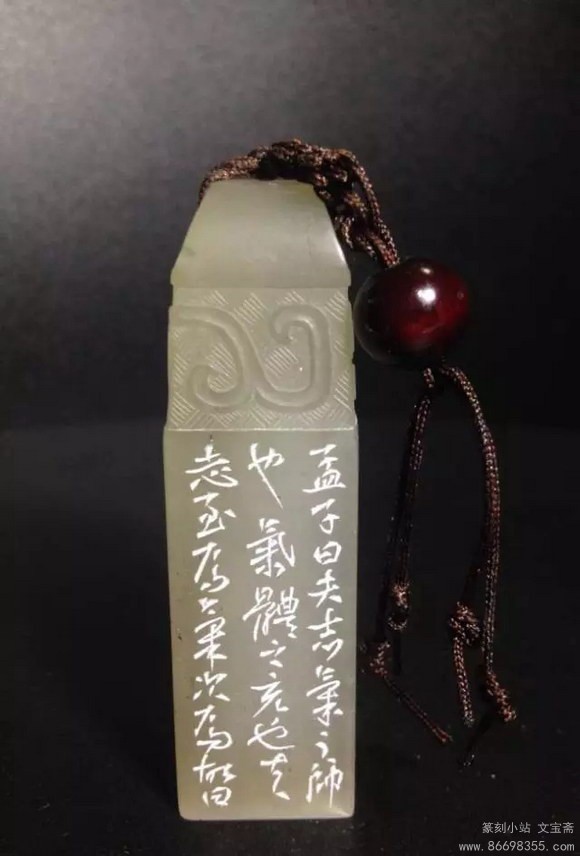 孟子曰夫志氣之帥
也氣體之充也夫
志至焉氣次焉故曰
篆刻小站 文宝斋
www.86698355.com